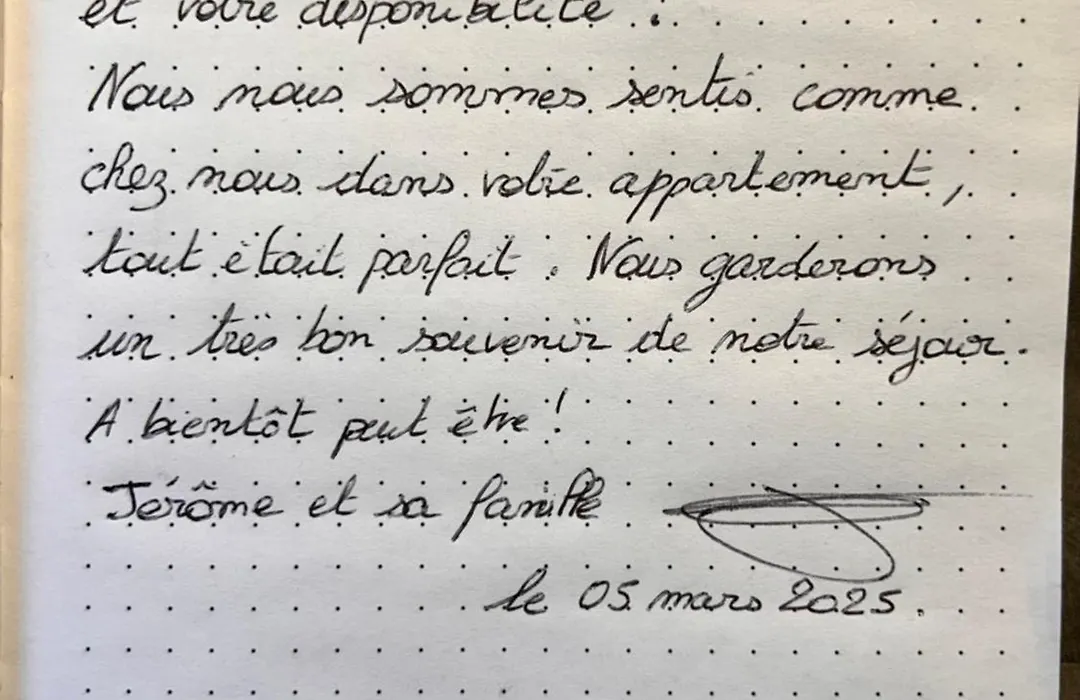 et votre disponibilité.
Nous nous sommes sentis comme
chez nous dans votre appartement,
tout était parfait. Nous garderons
un très bon souvenir de notre séjour.
A bientôt peut être !
Jérôme et sa famille
le 05 mars 2025.